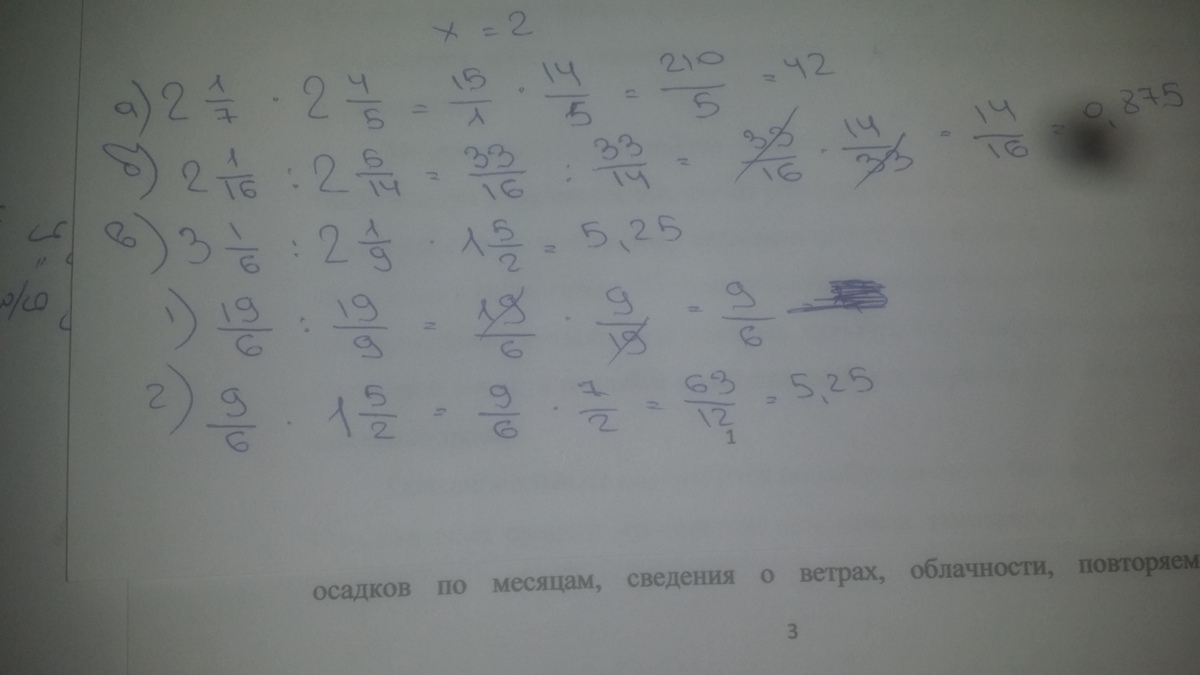 x = 2
а) 2 1/7 · 2 4/5 = 15/1 · 14/5 = 210/5 = 42
б) 2 1/16 : 2 5/14 = 33/16 : 33/14 = 33/16 · 14/33 = 14/16 = 0,875
в) 3 1/6 : 2 1/9 · 1 5/2 = 5,25
1) 19/6 : 19/9 = 19/6 · 9/19 = 9/6
2) 9/6 · 1 5/2 = 9/6 · 7/2 = 63/12 = 5,25
1
осадков по месяцам, сведения о ветрах, облачности, повторяем
3